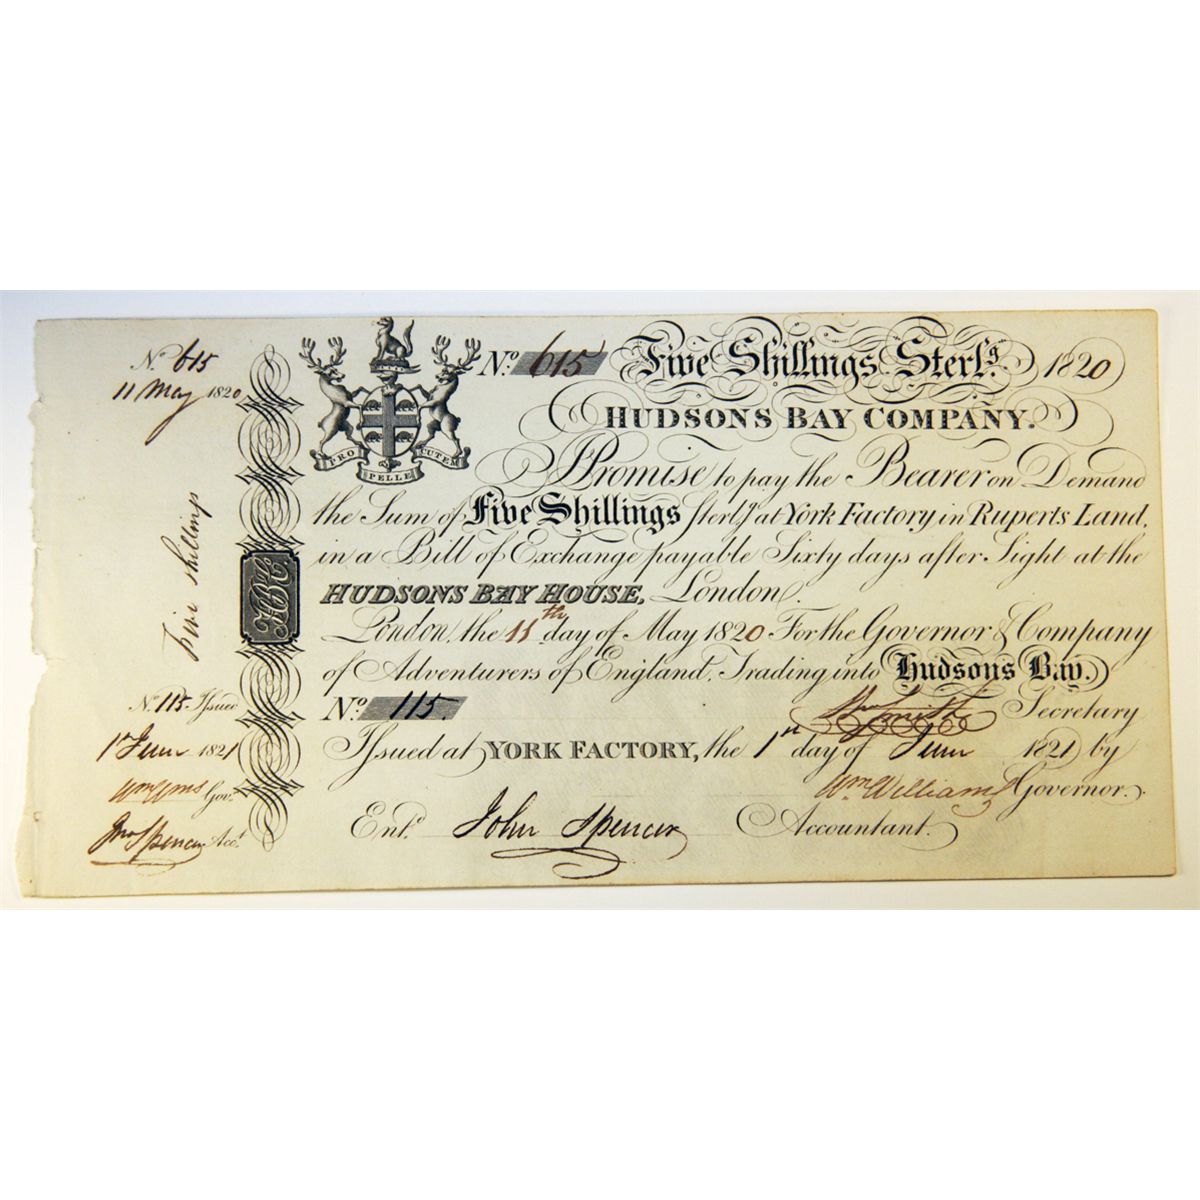 No. 615
11 May 1820
Five shillings
HBC.
No. 115 Issued
1st June 1821
Wm Wms Gov.
Jno Spencer Acct.
PRO PELLE CUTEM
No. 615 Five Shillings Sterlg. 1820
HUDSONS BAY COMPANY.
Promise to pay the Bearer on Demand
the Sum of Five Shillings Sterlg. at York Factory in Ruperts Land,
in a Bill of Exchange payable Sixty days after Sight at the
HUDSONS BAY HOUSE, London.
London, the 11th day of May 1820 For the Governor & Company
of Adventurers of England, Trading into Hudsons Bay.
No. 115. Wm Smith Secretary
Issued at YORK FACTORY, the 1st day of June 1821 by
Wm. Williams Governor.
Entd. John Spencer Accountant.